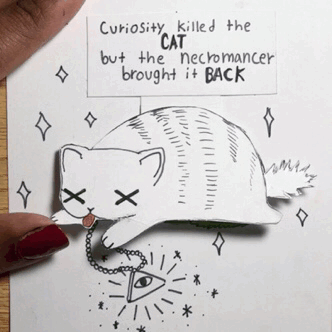 Curiosity killed the
CAT
but the necromancer
brought it BACK